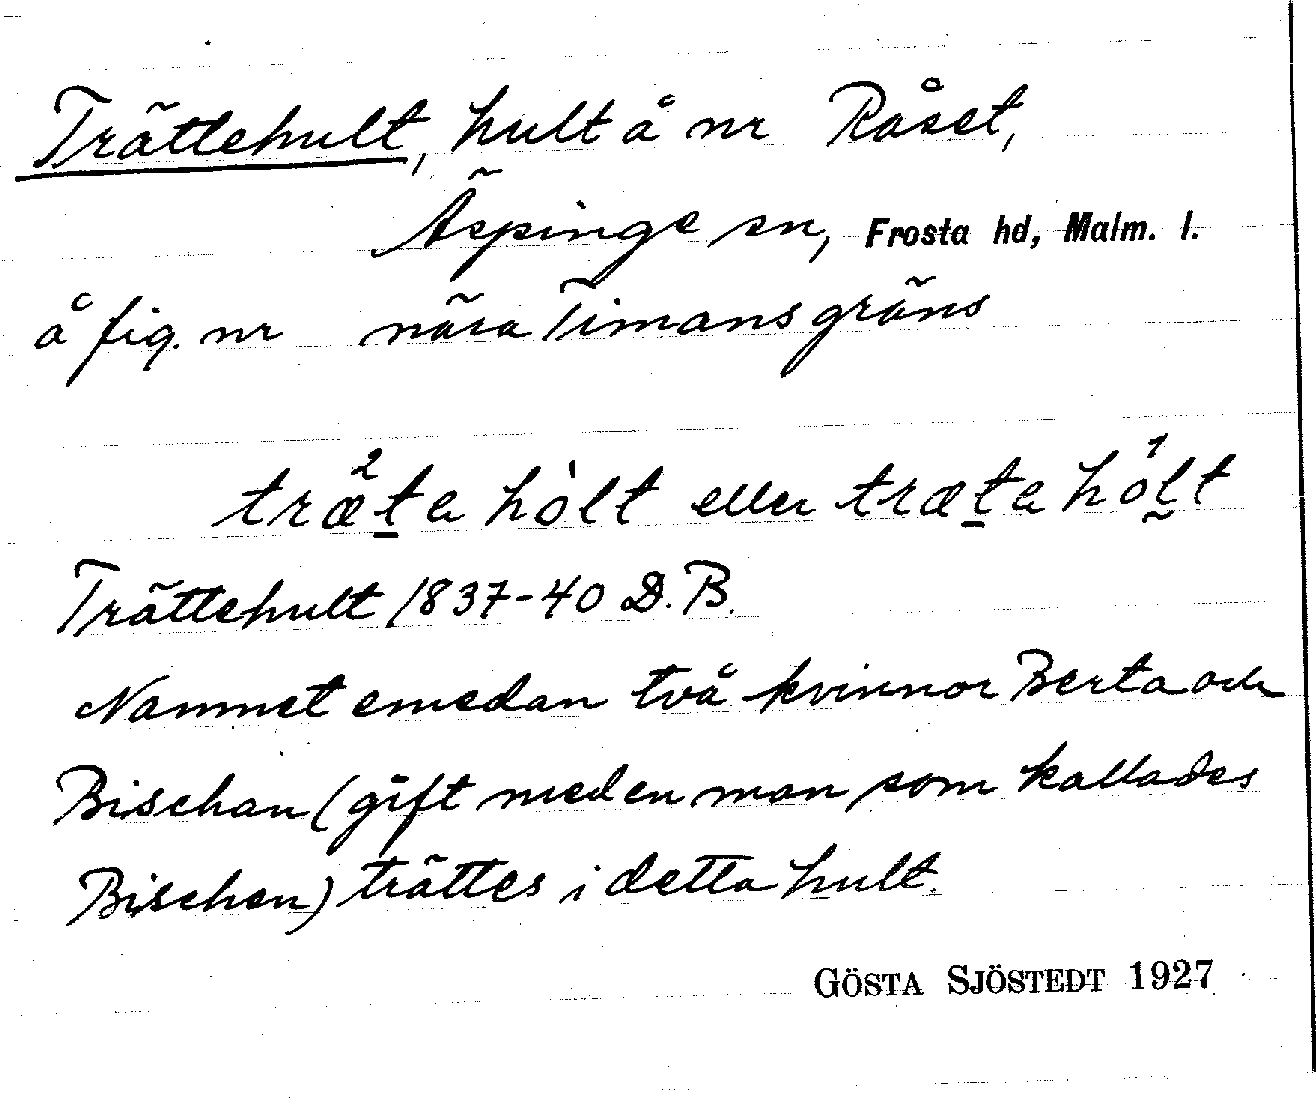 Trättehult, hult å nr Råset,
Äspinge sn, Frosta hd, Malm. l.
å fig. nr nära Timans gräns
træ²ta hòlt eller træta hó¹lt
Trättehult 1837-40 D.B.
Namnet emedan två kvinnor Berta och
Bischan (gift med en man som kallades
Bischen) trättes i detta hult.
GÖSTA SJÖSTEDT 1927